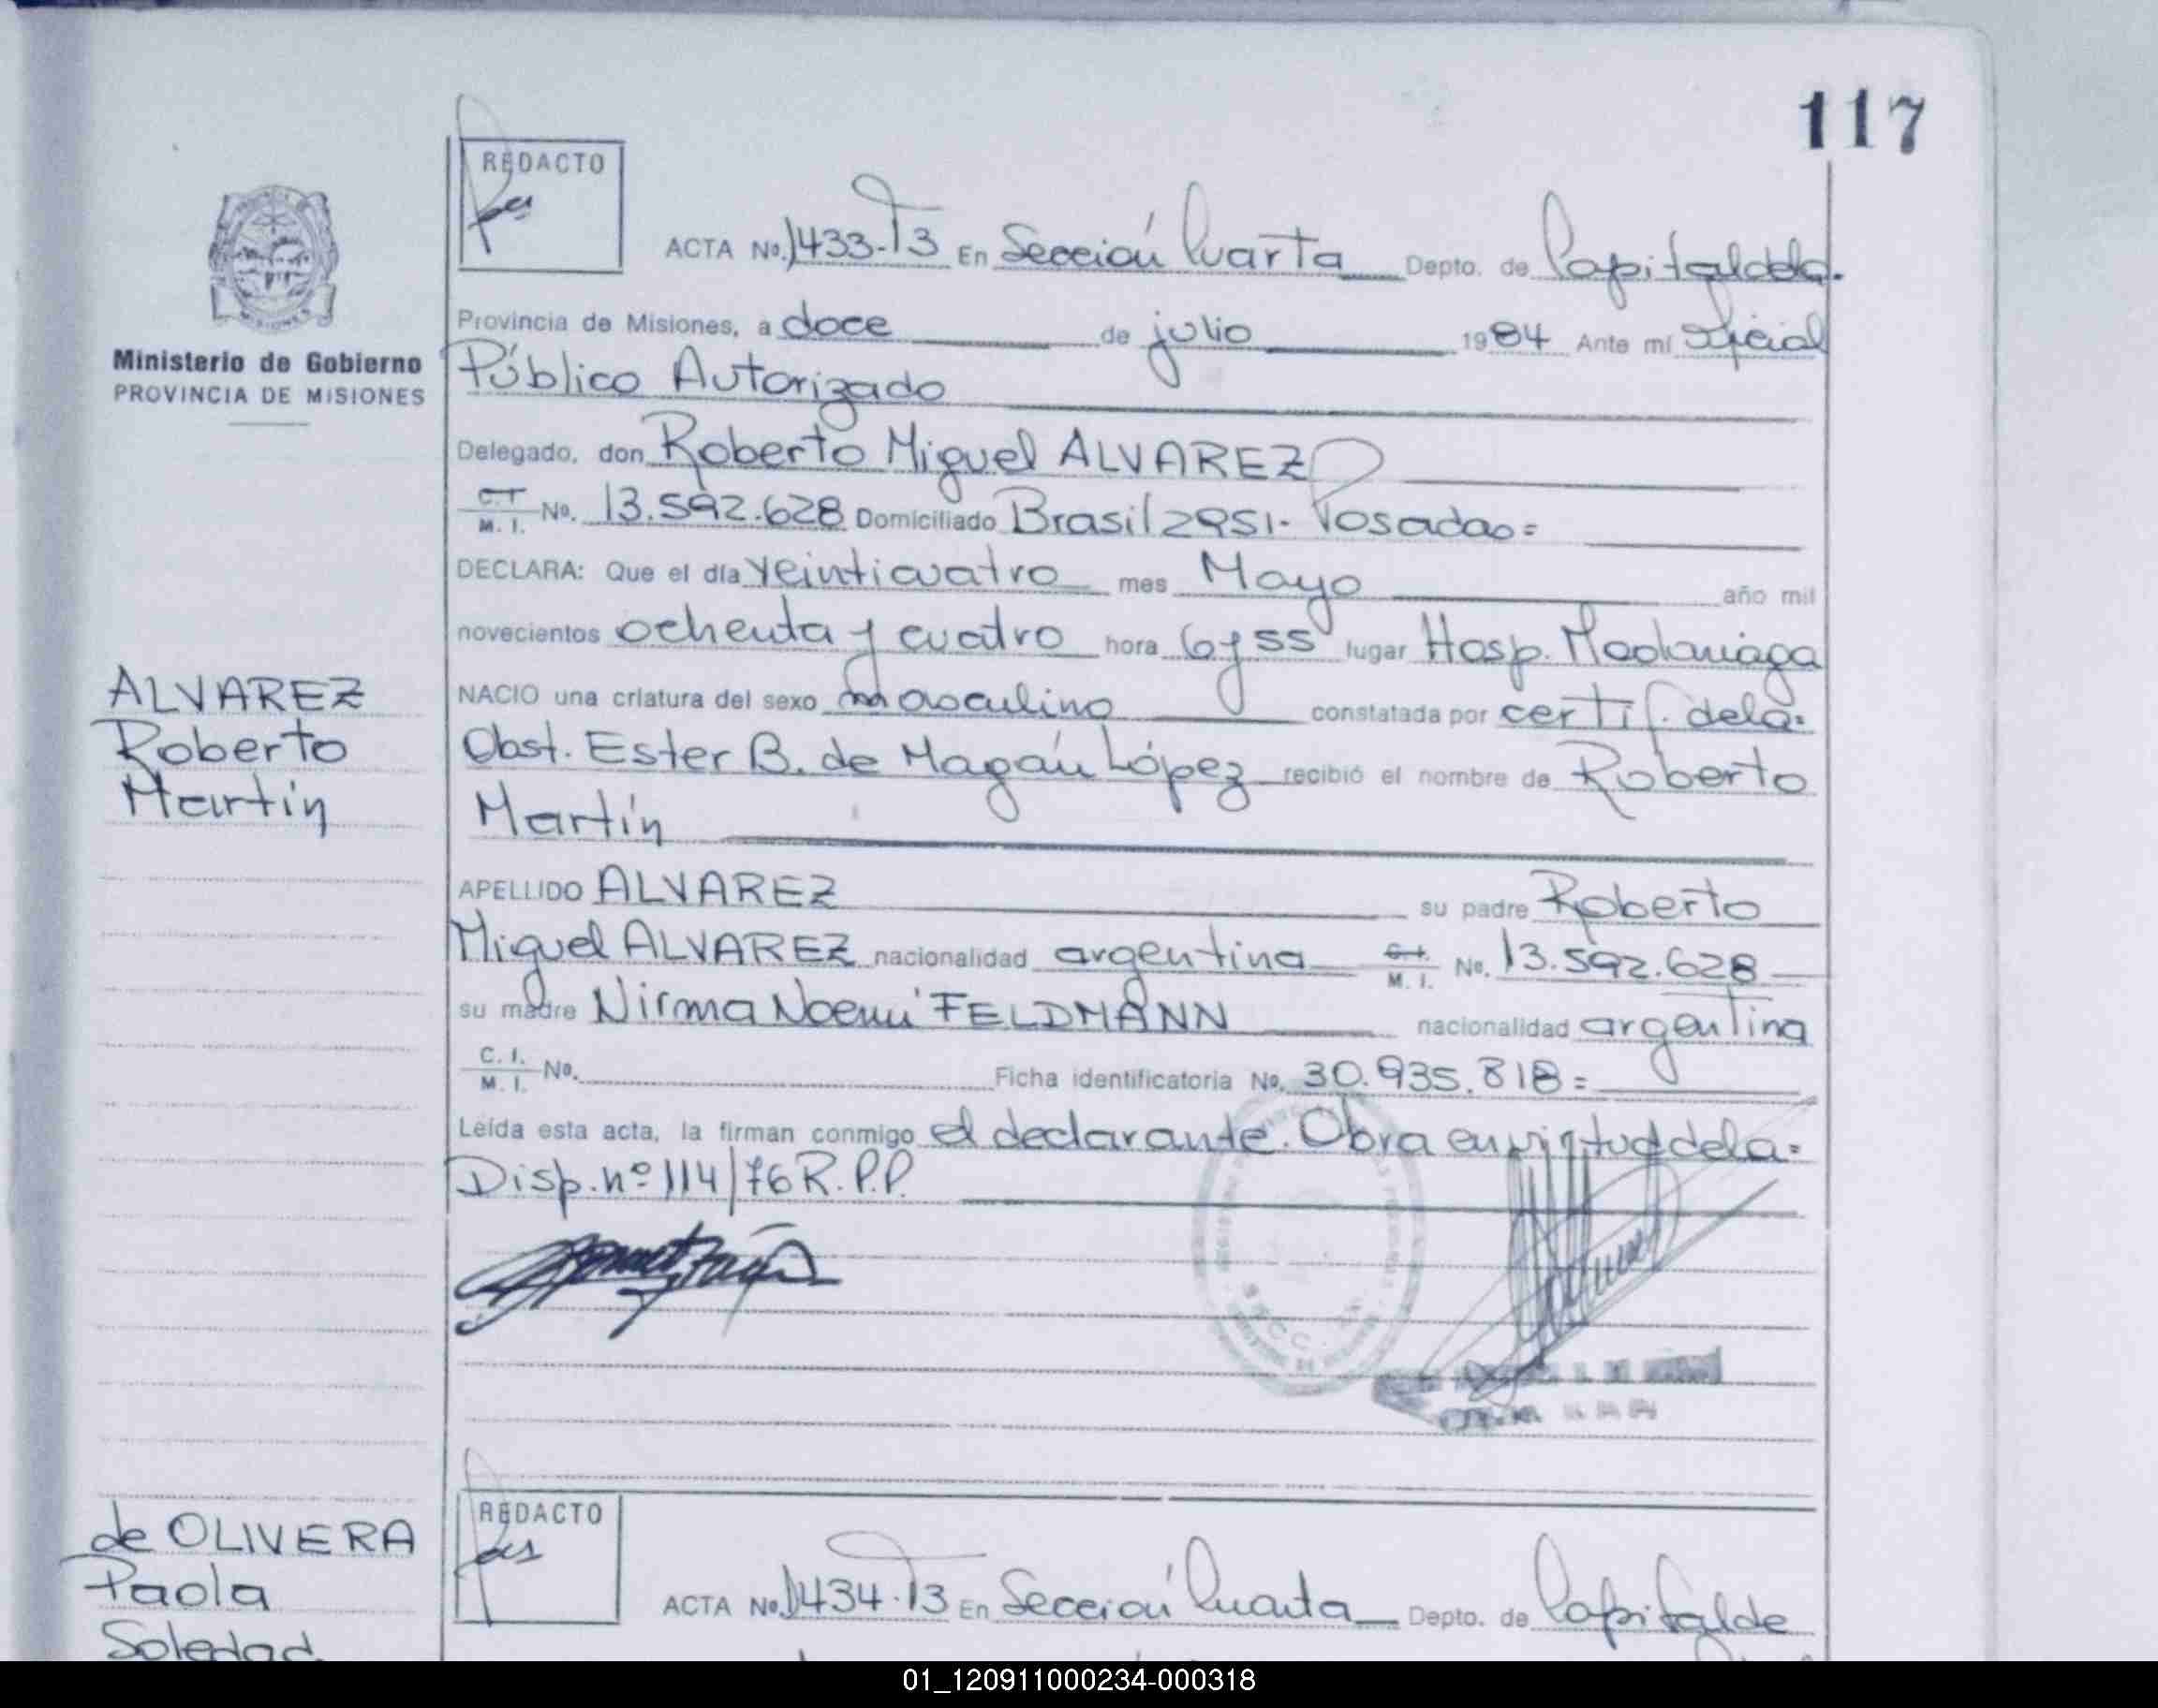 117
REDACTO
ACTA No. 1433-T3 En Sección Cuarta Depto. de Capital de la
Provincia de Misiones, a doce de julio 1984 Ante mí Oficial
Ministerio de Gobierno
PROVINCIA DE MISIONES
Público Autorizado
Delegado, don Roberto Miguel ALVAREZ
C.I. M. I. No. 13.592.628 Domiciliado Brasil 2951- Posadas=
DECLARA: Que el día veinticuatro mes Mayo año mil
novecientos ochenta y cuatro hora 6 y 55 lugar Hosp. Madariaga
ALVAREZ
Roberto
Martín
NACIO una criatura del sexo masculino constatada por certif. de la=
Obst. Ester B. de Magán López recibió el nombre de Roberto
Martín
APELLIDO ALVAREZ su padre Roberto
Miguel ALVAREZ nacionalidad argentina C.I. M. I. No. 13.592.628
su madre Nirma Noemí FELDMANN nacionalidad argentina
C. I. M. I. No. Ficha identificatoria No. 30.935.818=
Leída esta acta, la firman conmigo el declarante. Obra en virtud de la=
Disp. nº 114/76 R.P.P.
de OLIVERA
Paola
Soledad
REDACTO
ACTA No 1434-T3 En Sección Cuarta Depto. de Capital de
01_120911000234-000318